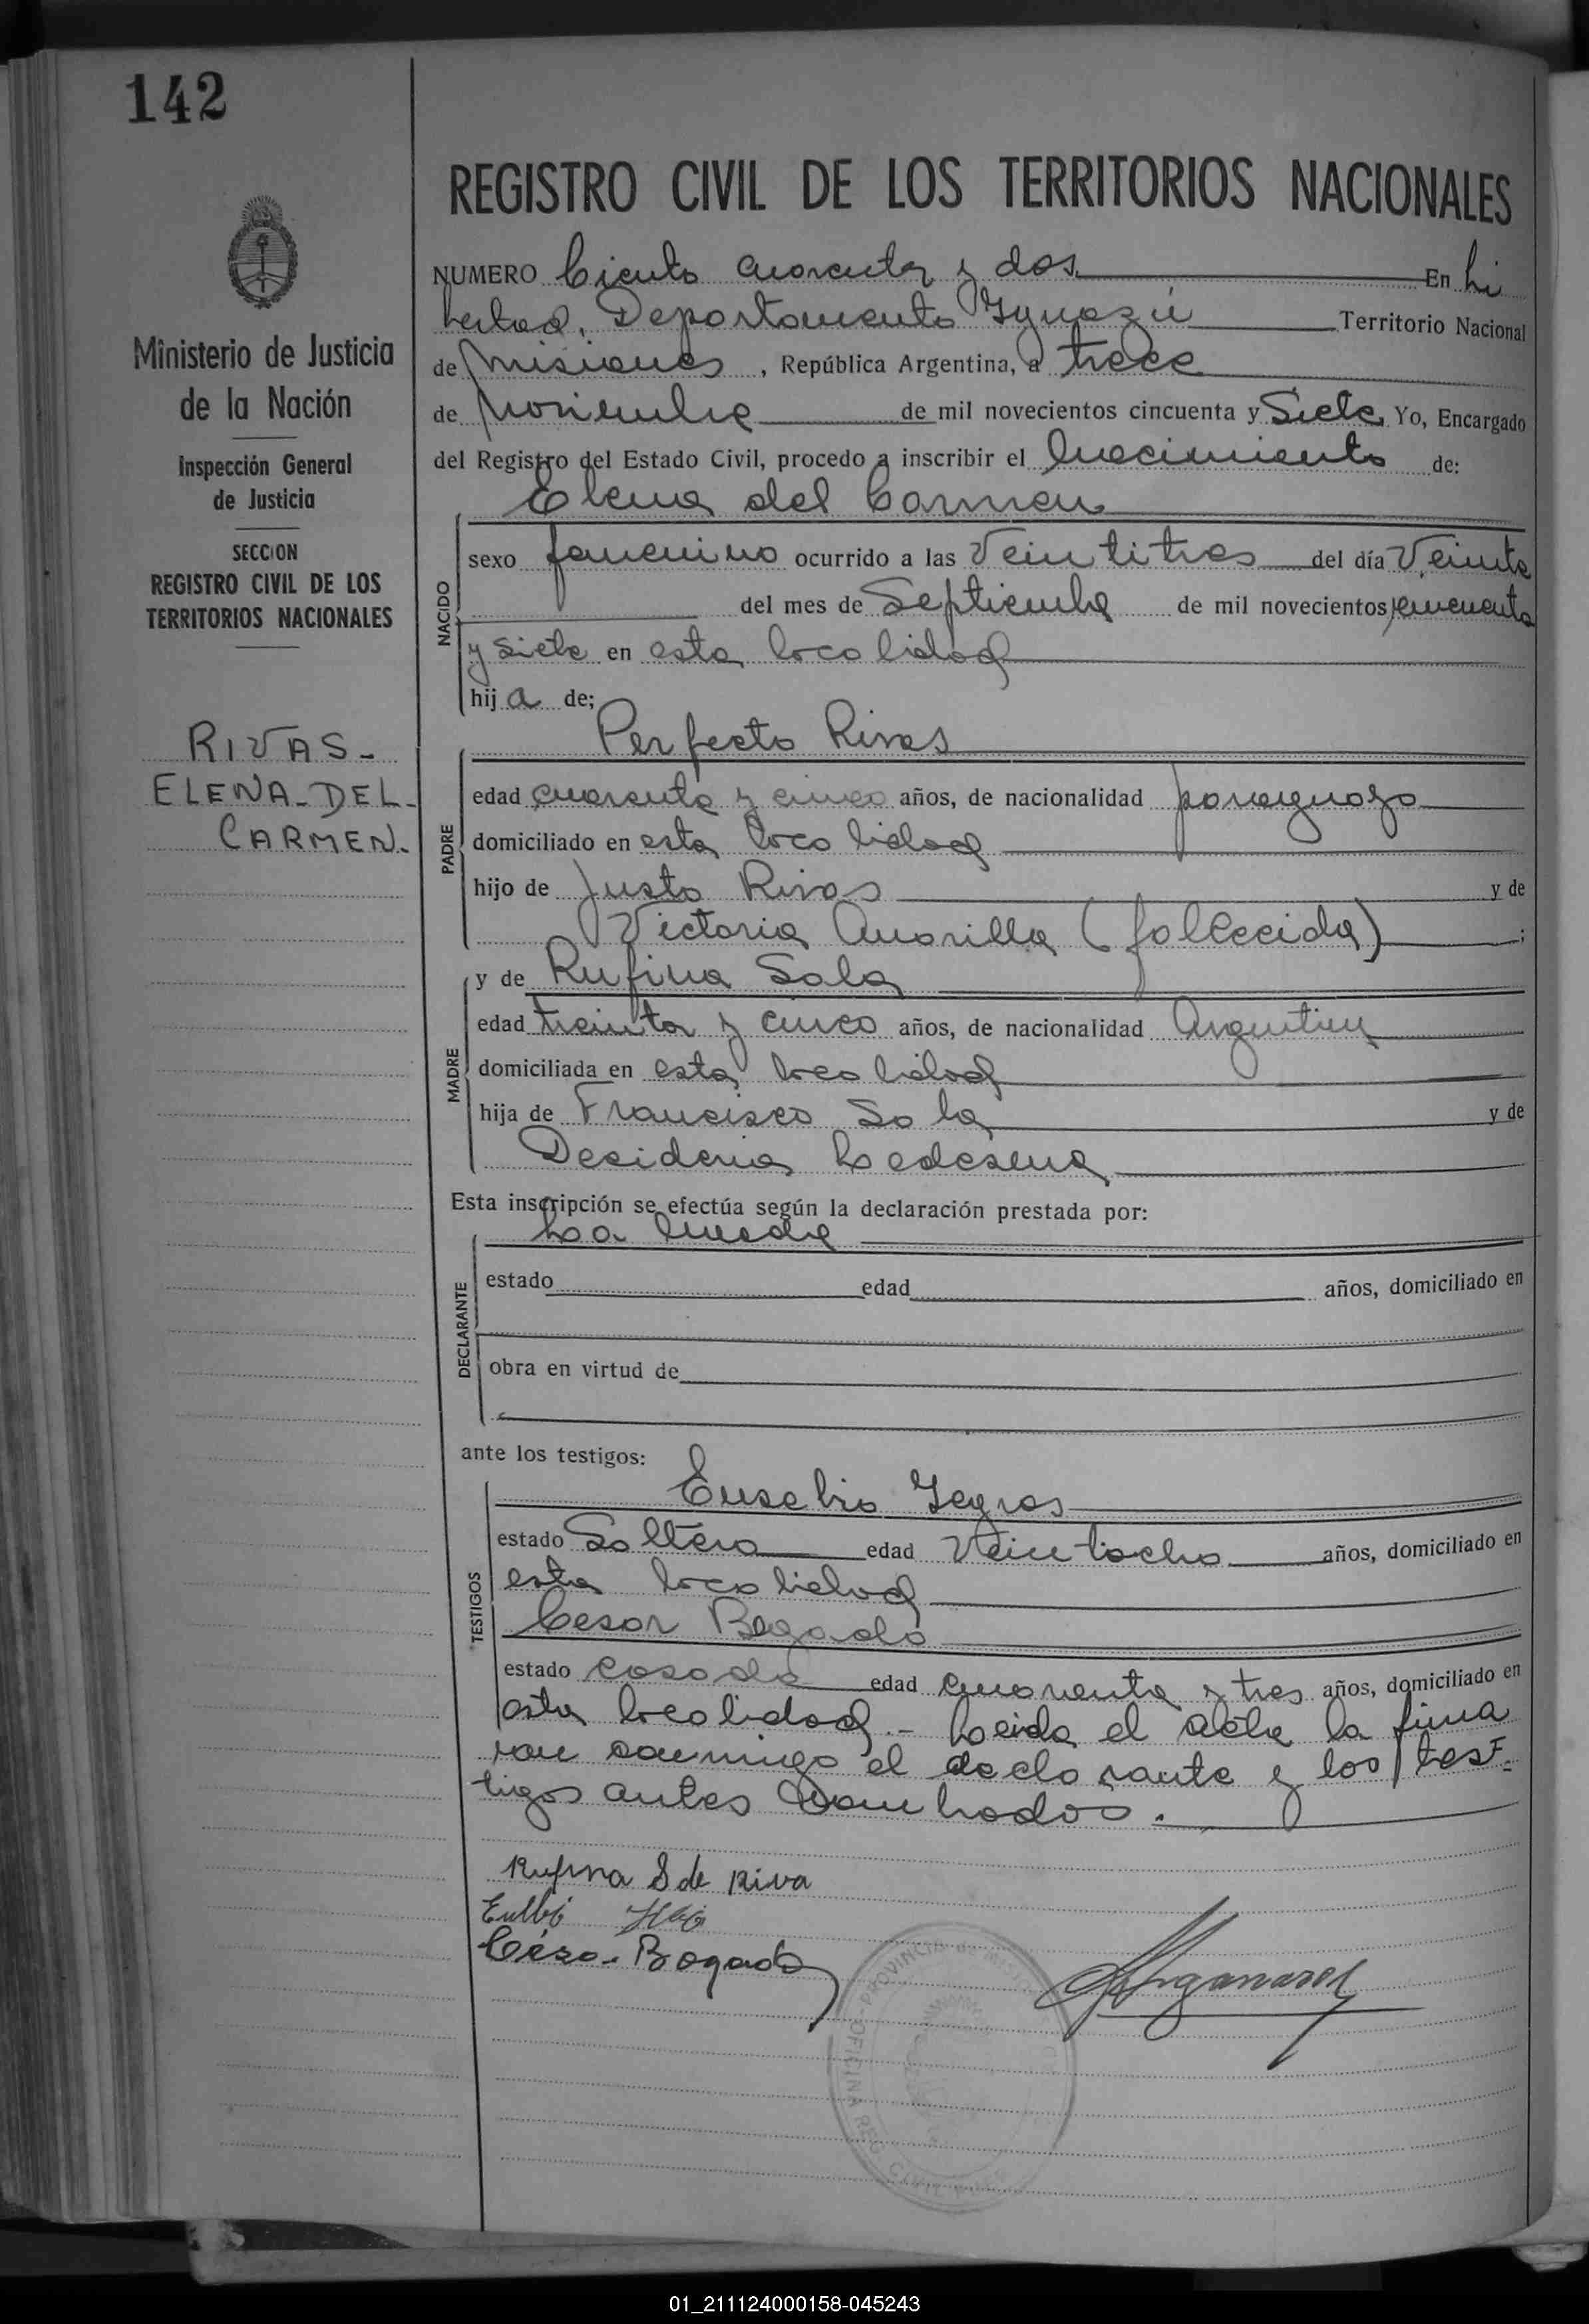 142
REGISTRO CIVIL DE LOS TERRITORIOS NACIONALES
Ministerio de Justicia
de la Nación
Inspección General
de Justicia
SECCION
REGISTRO CIVIL DE LOS
TERRITORIOS NACIONALES
RIVAS-
ELENA-DEL-
CARMEN.
NUMERO Ciento cuarenta y dos En Li
bertad, Departamento Yguazú Territorio Nacional
de Misiones, República Argentina, a trece
de Noviembre de mil novecientos cincuenta y Siete Yo, Encargado
del Registro del Estado Civil, procedo a inscribir el Nacimiento de:
Elena del Carmen
NACIDO
sexo femenino ocurrido a las Veintitres del día Veinte
del mes de Septiembre de mil novecientos cincuenta
y siete en esta localidad
hija de;
Perfecto Rivas
PADRE
edad cuarenta y cinco años, de nacionalidad paraguayo
domiciliado en esta localidad
hijo de Justo Rivas y de
Victoria Amarilla (fallecida);
y de Rufina Sala
MADRE
edad treinta y cinco años, de nacionalidad Argentina
domiciliada en esta localidad
hija de Francisco Sola y de
Desideria Ledesma
Esta inscripción se efectúa según la declaración prestada por:
La Madre
DECLARANTE
estado edad años, domiciliado en
obra en virtud de
ante los testigos:
TESTIGOS
Eusebio Yegros
estado Soltero edad Veintiocho años, domiciliado en
esta localidad
Cesar Bogado
estado casado edad cuarenta y tres años, domiciliado en
esta localidad.- Leida el acta la firma
ron conmigo el declarante y los tes-
tigos antes nombrados.
Rufina S de Riva
César Bogado
OFICINA REG. CIVIL PROVINCIA de MISIONES
01_211124000158-045243